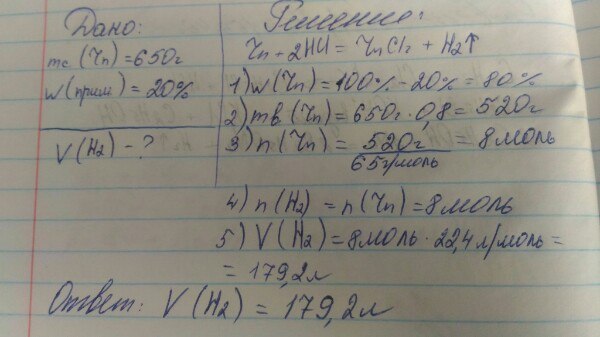 Дано:
mc (Zn) = 650г
w(прим) = 20%
V(H2) - ?
Решение:
Zn + 2HCl = ZnCl2 + H2↑
1) w(Zn) = 100% - 20% = 80%
2) mв. (Zn) = 650г · 0,8 = 520г
3) n (Zn) = 520г / 65г/моль = 8моль
4) n(H2) = n(Zn) = 8моль
5) V(H2) = 8моль · 22,4 л/моль =
= 179,2л
Ответ: V(H2) = 179,2л